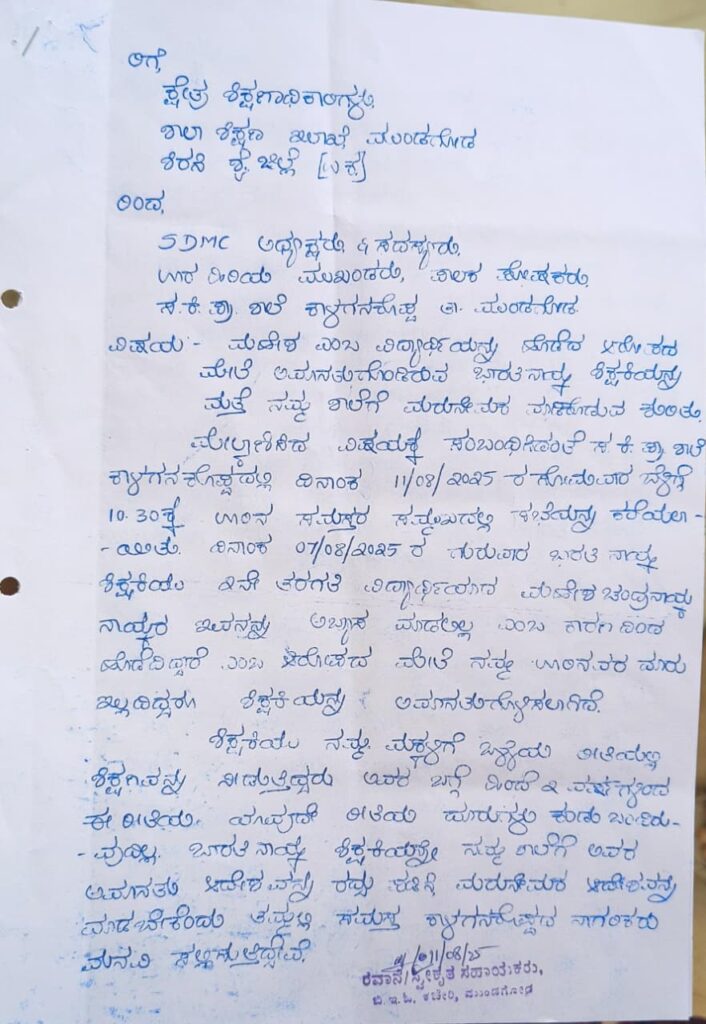 ಗೆ,
ಕ್ಷೇತ್ರ ಶಿಕ್ಷಣಾಧಿಕಾರಿಗಳು,
ಶಾಲಾ ಶಿಕ್ಷಣ ಇಲಾಖೆ ಮುಂಡಗೋಡ
ಶಿರಸಿ ಶೈ. ಜಿಲ್ಲೆ [ಉ.ಕ]
ಇಂದ,
SDMC ಅಧ್ಯಕ್ಷರು & ಸದಸ್ಯರು,
ಊರ ಹಿರಿಯ ಮುಖಂಡರು, ಪಾಲಕ ಪೋಷಕರು,
ಸ.ಕಿ.ಪ್ರಾ. ಶಾಲೆ ಕಾಳಗನಕೊಪ್ಪ ತಾ. ಮುಂಡಗೋಡ.
ವಿಷಯ:- ಮಣೇಶ ಎಂಬ ವಿದ್ಯಾರ್ಥಿಯನ್ನು ಹೊಡೆದ ಆರೋಪದ
ಮೇಲೆ ಅಮಾನತುಗೊಂಡಿರುವ ಭಾರತಿ ನಾಯ್ಕ ಶಿಕ್ಷಕಿಯನ್ನು
ಮತ್ತೆ ನಮ್ಮ ಶಾಲೆಗೆ ಮರುನೇಮಕ ಮಾಡಿಕೊಡುವ ಕುರಿತು.
ಮೇಲ್ಕಾಣಿಸಿದ ವಿಷಯಕ್ಕೆ ಸಂಬಂಧಿಸಿದಂತೆ ಸ.ಕಿ.ಪ್ರಾ. ಶಾಲೆ
ಕಾಳಗನಕೊಪ್ಪದಲ್ಲಿ ದಿನಾಂಕ 11/08/2025 ರ ಸೋಮವಾರ ಬೆಳಿಗ್ಗೆ
10.30ಕ್ಕೆ ಊರಿನ ಸಮಸ್ತರ ಸಮ್ಮುಖದಲ್ಲಿ ಸಭೆಯನ್ನು ಕರೆಯಲಾ-
-ಯಿತು. ದಿನಾಂಕ 07/08/2025 ರ ಗುರುವಾರ ಭಾರತಿ ನಾಯ್ಕ
ಶಿಕ್ಷಕಿಯು 2ನೇ ತರಗತಿ ವಿದ್ಯಾರ್ಥಿಯಾದ ಮಣೇಶ ಚಂದ್ರನಾಯ್ಕ
ನಾಯ್ಕರ ಇವನನ್ನು ಅಬ್ಯಾಸ ಮಾಡಲಿಲ್ಲ ಎಂಬ ಕಾರಣದಿಂದ
ಹೊಡೆದಿದ್ದಾರೆ ಎಂಬ ಆರೋಪದ ಮೇಲೆ ನಮ್ಮ ಊರಿನವರ ದೂರು
ಇಲ್ಲದಿದ್ದರೂ ಶಿಕ್ಷಕಿಯನ್ನು ಅಮಾನತುಗೊಳಿಸಲಾಗಿದೆ.
ಶಿಕ್ಷಕಿಯು ನಮ್ಮ ಮಕ್ಕಳಿಗೆ ಒಳ್ಳೆಯ ರೀತಿಯಲ್ಲಿ
ಶಿಕ್ಷಣವನ್ನು ನೀಡುತ್ತಿದ್ದರು ಅವರ ಬಗ್ಗೆ ಹಿಂದೆ 2 ವರ್ಷಗಳಿಂದ
ಈ ರೀತಿಯ ಯಾವುದೇ ರೀತಿಯ ದೂರುಗಳು ಕಂಡು ಬಂದಿರು-
-ವುದಿಲ್ಲ. ಭಾರತಿ ನಾಯ್ಕ ಶಿಕ್ಷಕಿಯನ್ನೇ ನಮ್ಮ ಶಾಲೆಗೆ ಅವರ
ಅಮಾನತು ಆದೇಶವನ್ನು ರದ್ದು ಪಡಿಸಿ ಮರುನೇಮಕ ಆದೇಶವನ್ನು
ಮಾಡಬೇಕೆಂದು ತಮ್ಮಲ್ಲಿ ಸಮಸ್ತ ಕಾಳಗನಕೊಪ್ಪದ ನಾಗರಿಕರು
ಮನವಿ ಸಲ್ಲಿಸುತ್ತಿದ್ದೇವೆ.
11/08/25
ರವಾನೆ/ಸ್ವೀಕೃತ ಸಹಾಯಕರು,
ಬಿ.ಇ.ಓ. ಕಚೇರಿ, ಮುಂಡಗೋಡ